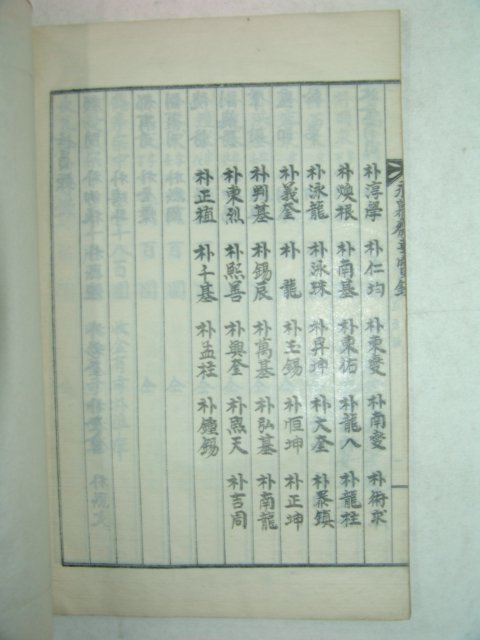 朴淳學 朴仁均 朴東燮 朴南燮 朴術求
朴煥根 朴南基 朴東祐 朴龍八 朴龍柱
朴泳龍 朴泳珠 朴昇坤 朴大奎 朴泰鎮
朴義奎 朴龍 朴玉錫 朴恒坤 朴正坤
朴判基 朴錫辰 朴萬基 朴弘基 朴南龍
朴東烈 朴熙善 朴興奎 朴熙天 朴吉周
朴正植 朴千基 朴孟柱 朴鍾錫